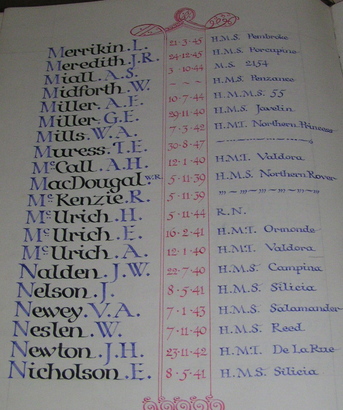 Merrikin. L. 21·3·45 H.M.S. Pembroke
Meredith. J.R. 24·12·45 H.M.S. Porcupine
Miall. A.S. 3·10·44 M.S. 2154
Midforth. W. ~ ~ ~ H.M.S. Penzance
Miller. A.E. 10·7·44 H.M.M.S. 55
Miller. G.E. 29·11·40 H.M.S. Javelin
Mills. W.A. 7·3·42 H.M.T. Northern Princess
Muress. T.E. 30·8·47
McCall. A.H. 12·1·40 H.M.T. Valdora
MacDougal. W.R. 5·11·39 H.M.S. Northern Rover
McKenzie. R. 5·11·39 —"—"—"—"—"—
McUrich. H. 5·11·44 R.N.
McUrich. E. 16·2·41 H.M.T. Ormonde
McUrich. A. 12·1·40 H.M.T. Valdora
Nalden. J.W. 22·7·40 H.M.S. Campina
Nelson. J. 8·5·41 H.M.S. Silicia
Newey. V.A. 7·1·43 H.M.S. Salamander
Neslen. W. 7·11·40 H.M.S. Reed
Newton. J.H. 23·11·42 H.M.T. De La Rue
Nicholson. E. 8·5·41 H.M.S. Silicia